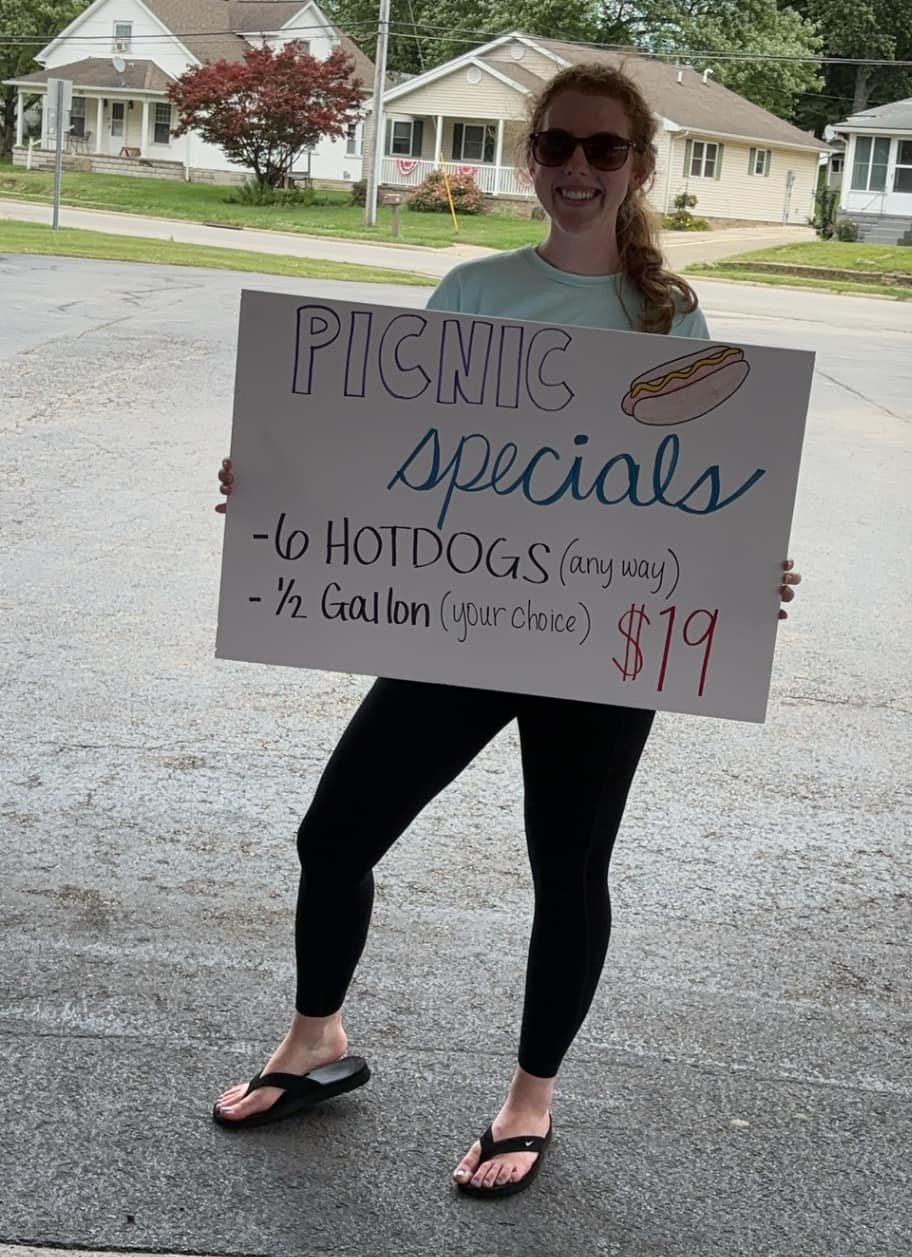 PICNIC
specials
-6 HOTDOGS (any way)
- ½ Gallon (your choice) $19